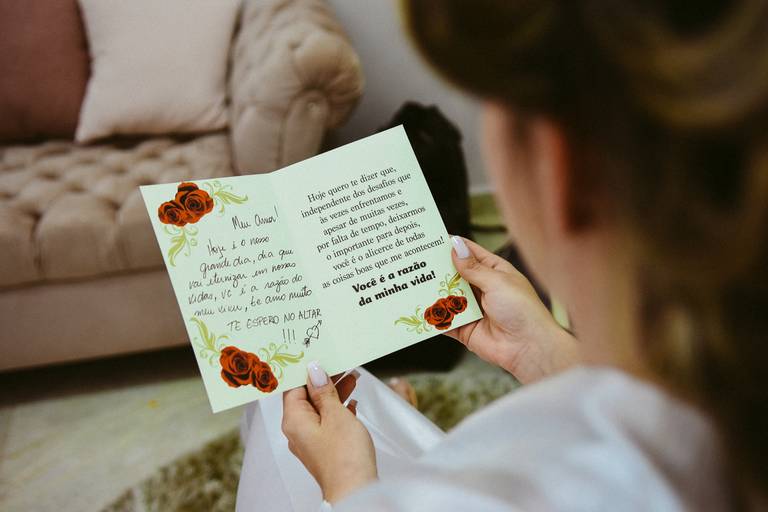 Meu Amor!
Hoje é o nosso
grande dia, dia que
vai eternizar em nossas
vidas, vc é a razão do
meu viver, te amo muito
TE ESPERO NO ALTAR
!!!
Hoje quero te dizer que,
independente dos desafios que
às vezes enfrentamos e
apesar de muitas vezes,
por falta de tempo, deixarmos
o importante para depois,
você é o alicerce de todas
as coisas boas que me acontecem!
Você é a razão
da minha vida!